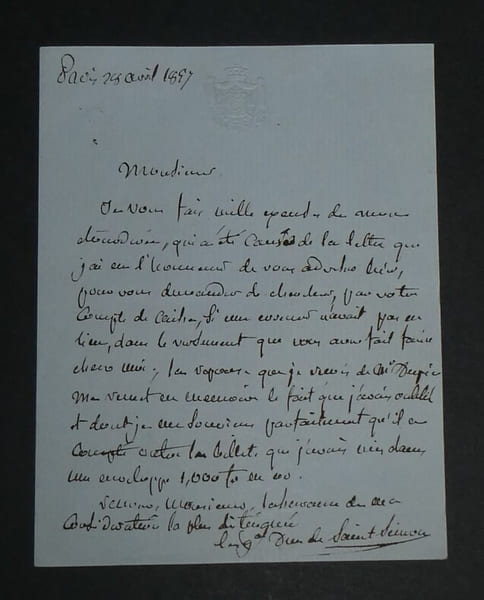 Paris 28 avril 1857
Monsieur
Je vous fais mille excuses de mon
étourderie, qui a été cause de la lettre que
j'ai eu l'honneur de vous adresser hier,
pour vous demander de chercher, par votre
compte de caisse, si une erreur n'avait pas eu
lieu, dans le versement que vous avez fait faire
chez moi; la réponse que je reçois de Mr
me remet en mémoire le fait que j'avais oublié
et dont je me souviens parfaitement qu'il en
compte outre les billets que j'avais mis dans
une enveloppe 1,000 f en or.
Monsieur, l'assurance de ma
considération la plus distinguée
Duc de Saint Simon